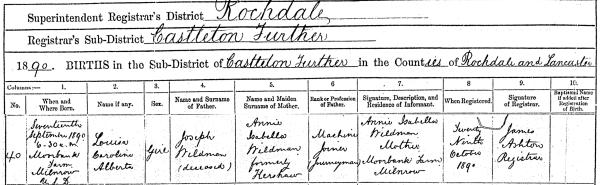 Superintendent Registrar's District Rochdale
Registrar's Sub-District Castleton Further
1890. BIRTHS in the Sub-District of Castleton Further in the Counties of Rochdale and Lancaster
Columns:— 1. 2. 3. 4. 5. 6. 7. 8. 9. 10.
No. When and Where Born. Name if any. Sex. Name and Surname of Father. Name and Maiden Surname of Mother. Rank or Profession of Father. Signature, Description, and Residence of Informant. When Registered. Signature of Registrar. Baptismal Name if added after Registration of Birth.
40
Seventeenth September 1890 6-30 a.m. Monbank Farm Milnrow U.S.D.
Louisa Caroline Alberta
Girl
Joseph Wildman (deceased)
Annie Isabella Wildman formerly Hershaw
Machine Joiner Journeyman
Annie Isabella Wildman Mother Monbank Farm Milnrow
Twenty Ninth October 1890
James Ashton Registrar